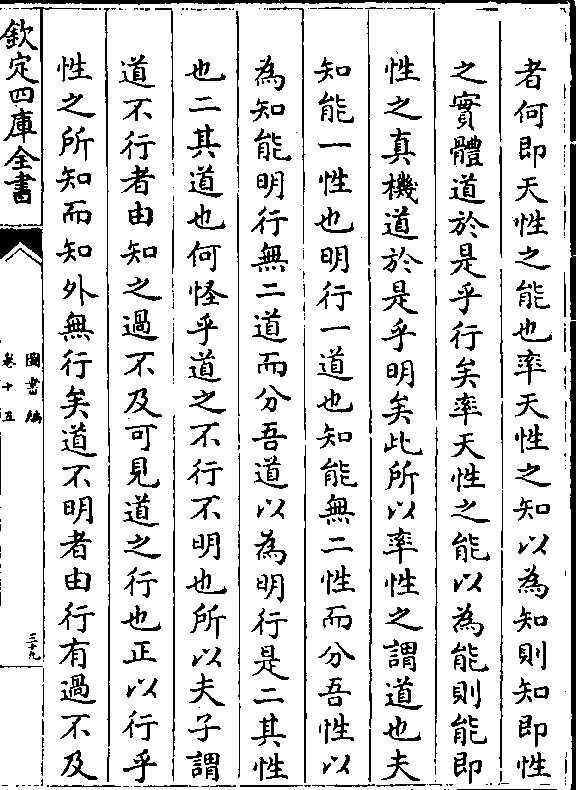 者何即天性之能也率天性之知以為知則知即性
之實體道於是乎行矣率天性之能以為能則能即
性之真機道於是乎明矣此所以率性之謂道也夫
知能一性也明行一道也知能無二性而分吾性以
為知能明行無二道而分吾道以為明行是二其性
也二其道也何怪乎道之不行不明也所以夫子謂
道不行者由知之過不及可見道之行也正以行乎
性之所知而知外無行矣道不明者由行有過不及
欽定四庫全書
圖書編
卷十五
三十九